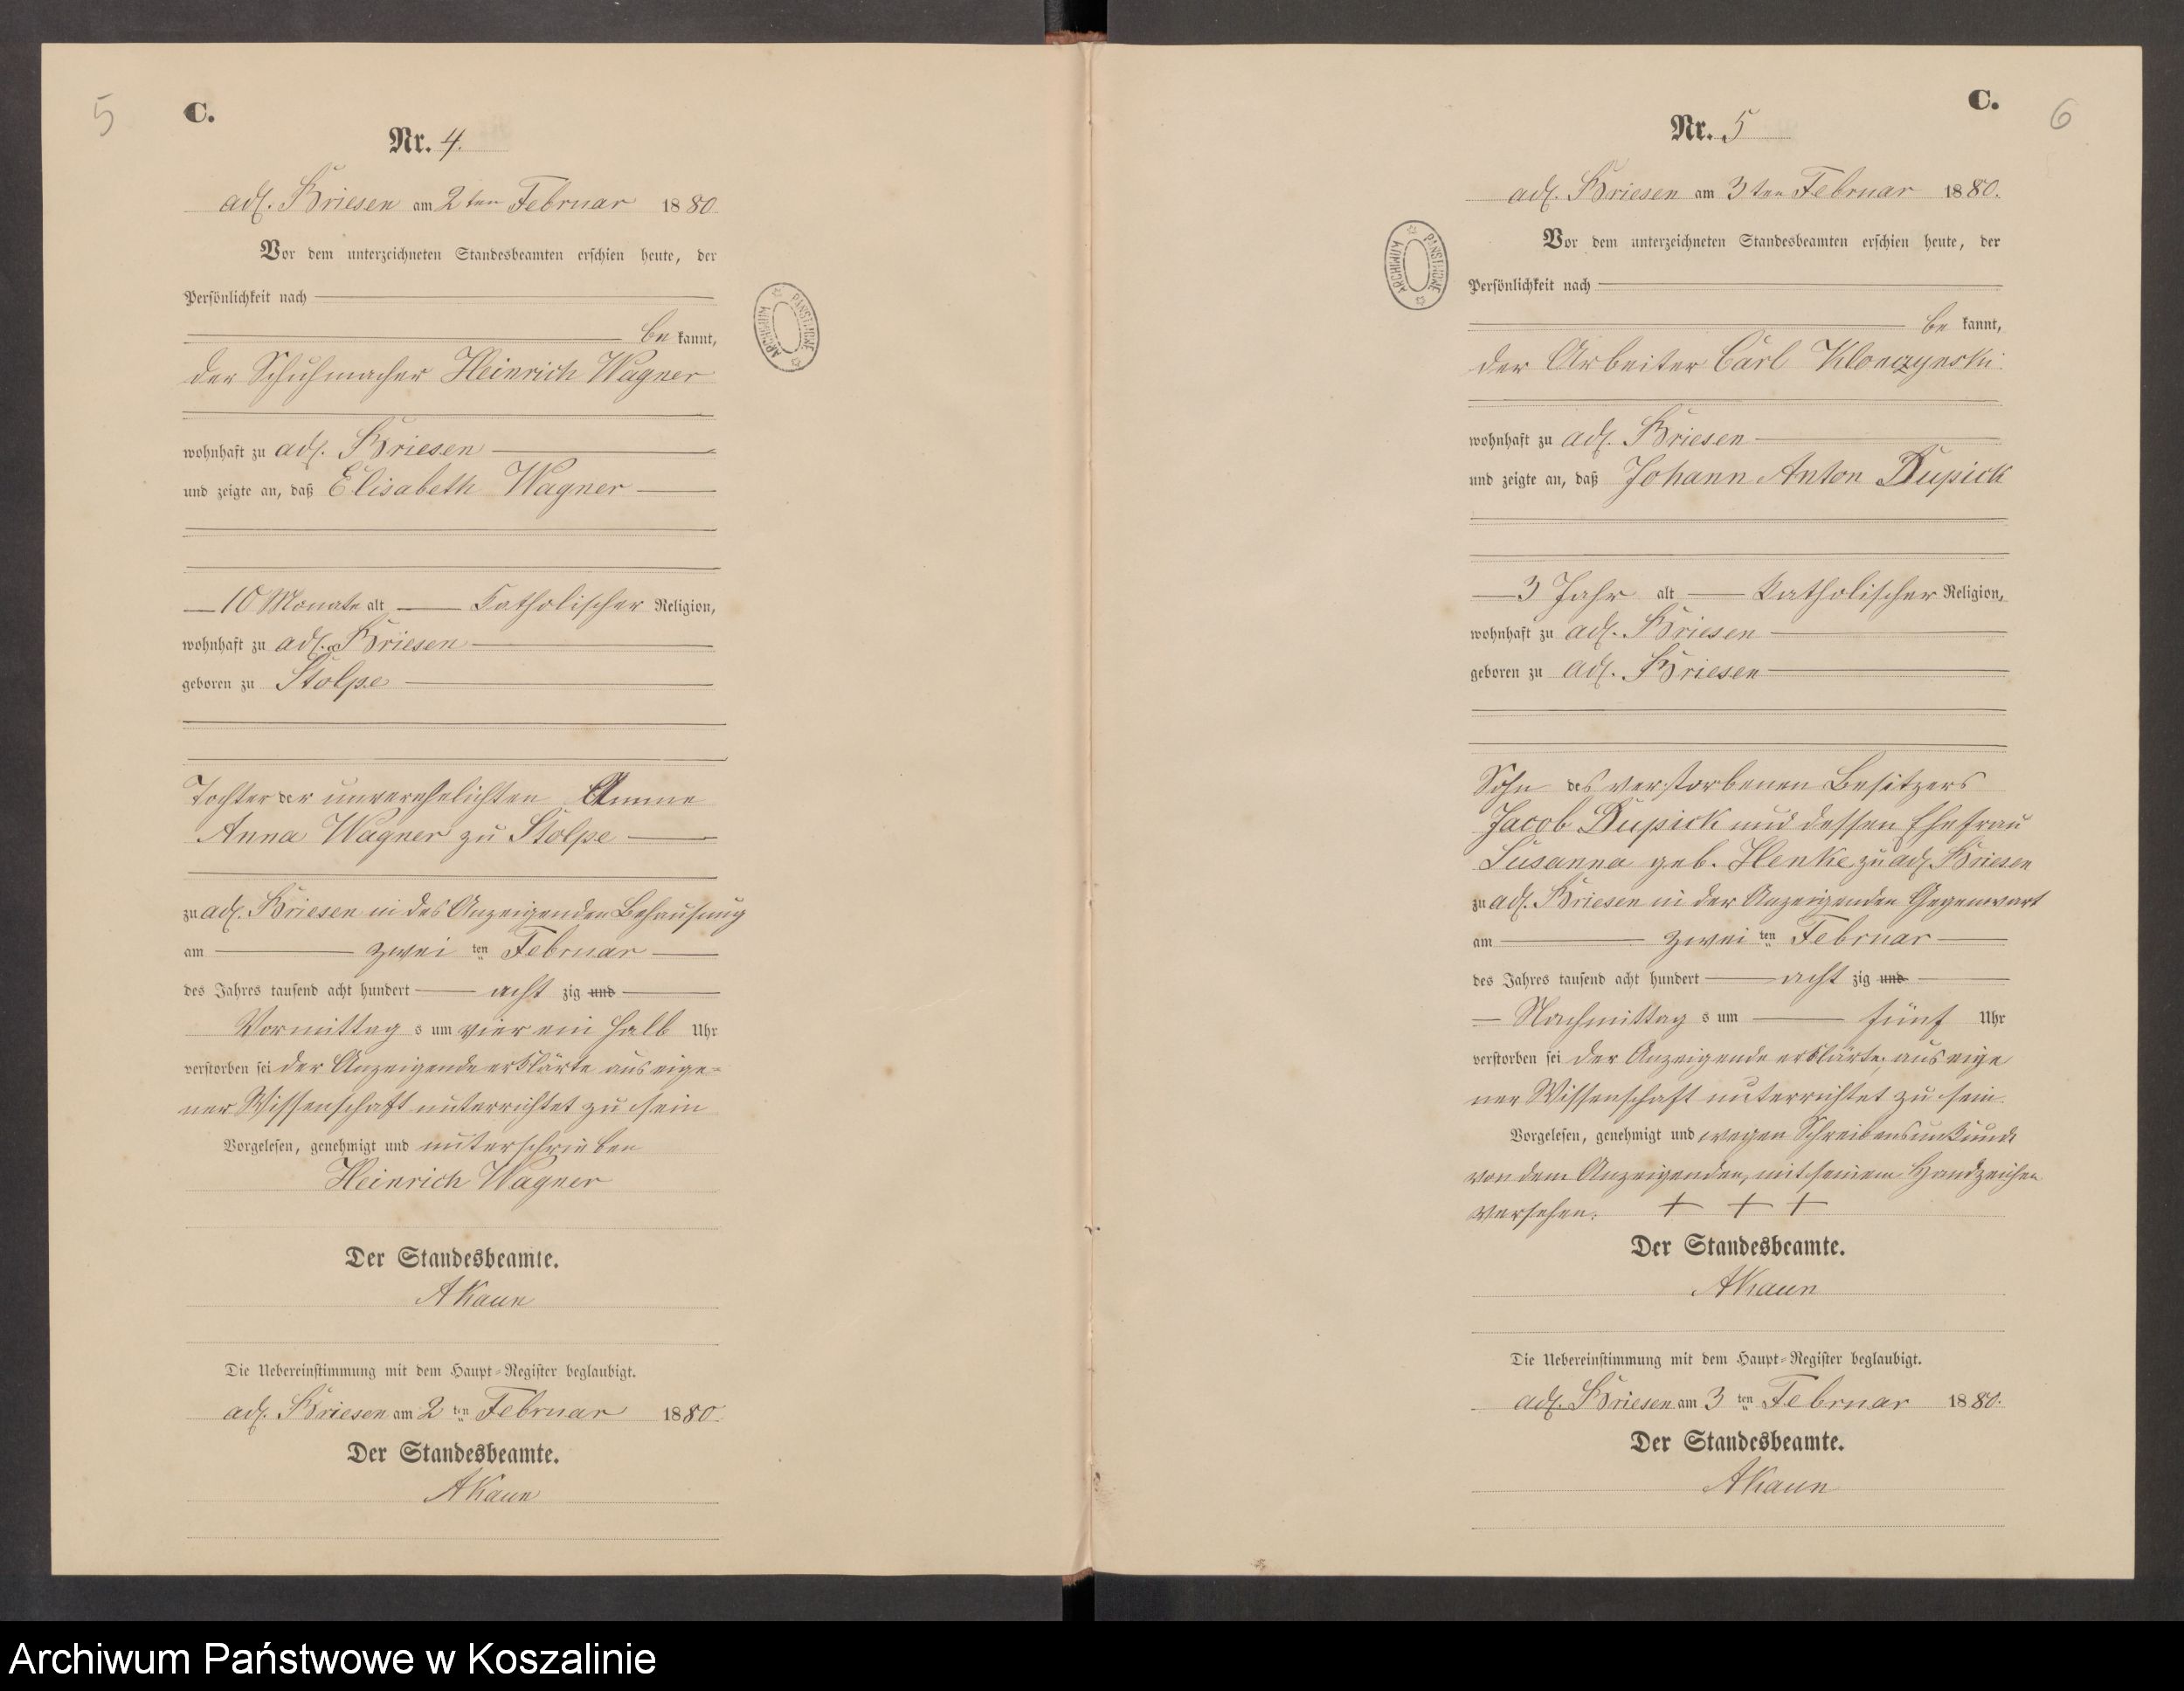 5
C.
Nr. 4.
adl. Briesen am 2ten Februar 1880
Vor dem unterzeichneten Standesbeamten erschien heute, der
Persönlichkeit nach
be kannt,
der Schuhmacher Heinrich Wagner
wohnhaft zu adl. Briesen
und zeigte an, daß Elisabeth Wagner
10 Monate alt katholischer Religion,
wohnhaft zu adl. Briesen
geboren zu Stolpe
Tochter der unverehelichten Amme
Anna Wagner zu Stolpe
zu adl. Briesen in des Anzeigenden Behausung
am zwei ten Februar
des Jahres tausend acht hundert acht zig und
Vormittag s um vier ein halb Uhr
verstorben sei der Anzeigende erklärte aus eige=
ner Wissenschaft unterrichtet zu sein
Vorgelesen, genehmigt und unterschrieben
Heinrich Wagner
Der Standesbeamte.
AKaun
Die Uebereinstimmung mit dem Haupt=Register beglaubigt.
adl. Briesen am 2 ten Februar 1880.
Der Standesbeamte.
AKaun
ARCHIWUM PAŃSTWOWE
C.
6
Nr. 5
adl. Briesen am 3ten Februar 1880.
Vor dem unterzeichneten Standesbeamten erschien heute, der
Persönlichkeit nach
be kannt,
der Arbeiter Carl Klonczynski
wohnhaft zu adl. Briesen
und zeigte an, daß Johann Anton Dupick
3 Jahr alt katholischer Religion,
wohnhaft zu adl. Briesen
geboren zu adl. Briesen
Sohn des verstorbenen Besitzers
Jacob Dupick und dessen Ehefrau
Susanna geb. Henke zu adl. Briesen
zu adl. Briesen in der Anzeigenden Gegenwart
am zwei ten Februar
des Jahres tausend acht hundert acht zig und
Nachmittag s um fünf Uhr
verstorben sei der Anzeigende erklärte, aus eige
ner Wissenschaft unterrichtet zu sein.
Vorgelesen, genehmigt und wegen Schreibensunkunde
von dem Anzeigenden, mit seinem Handzeichen
versehen. + + +
Der Standesbeamte.
AKaun
Die Uebereinstimmung mit dem Haupt=Register beglaubigt.
adl. Briesen am 3 ten Februar 1880.
Der Standesbeamte.
AKaun
ARCHIWUM PAŃSTWOWE
Archiwum Państwowe w Koszalinie